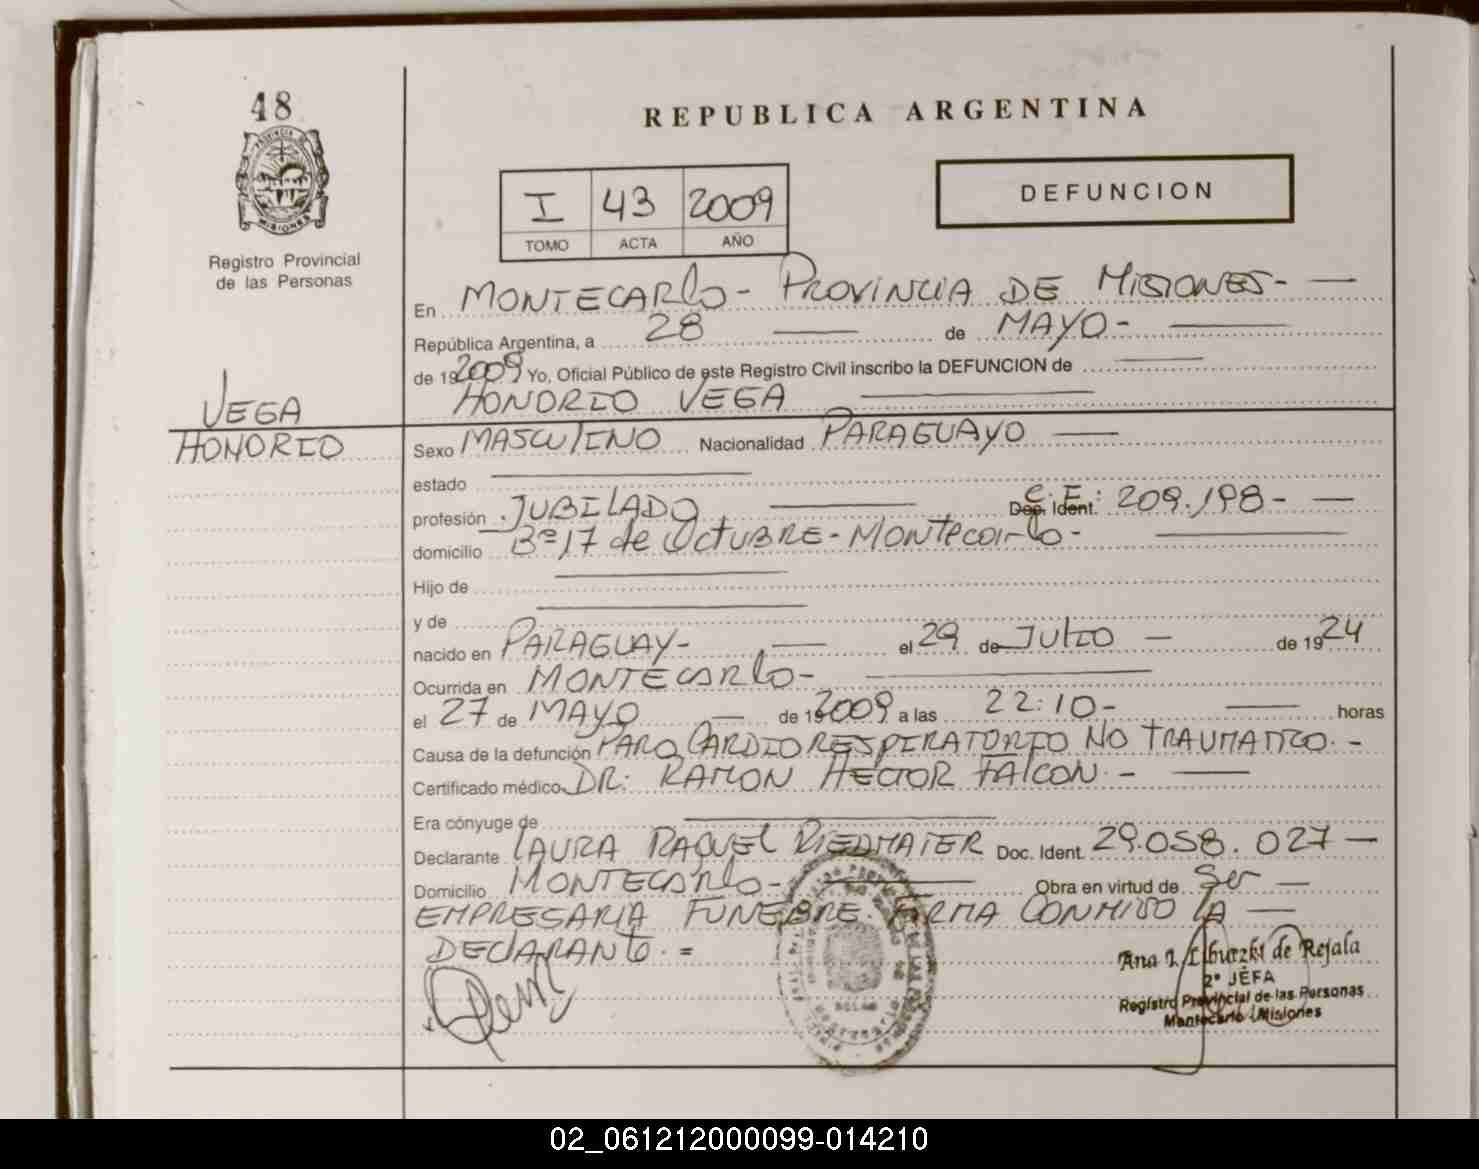 48
REPUBLICA ARGENTINA
PROVINCIA DE
MISIONES
Registro Provincial
de las Personas
I 43 2009
TOMO ACTA AÑO
DEFUNCION
En MONTECARLO - PROVINCIA DE MISIONES -
República Argentina, a 28 de MAYO -
de 19 2009 Yo, Oficial Público de este Registro Civil inscribo la DEFUNCION de
HONORIO VEGA
VEGA
HONORIO
Sexo MASCULINO Nacionalidad PARAGUAYO
estado
profesión JUBILADO Doc. Ident. C.E.: 209.198 -
domicilio Bº 17 de Octubre - Montecarlo -
Hijo de
y de
nacido en PARAGUAY - el 29 de Julio de 19 24
Ocurrida en MONTECARLO -
el 27 de MAYO de 19 2009 a las 22:10 - horas
Causa de la defunción PARO CARDIORESPIRATORIO NO TRAUMATICO. -
Certificado médico DR: RAMON HECTOR FALCON. -
Era cónyuge de
Declarante LAURA RAQUEL RIEDMAIER Doc. Ident. 29.058.027
Domicilio MONTECARLO - Obra en virtud de Ser
EMPRESARIA FUNEBRE. FIRMA CONMIGO LA
DECLARANTE. =
Ana I. de Rejala
2º JEFA
Registro Provincial de las Personas
Montecarlo - Misiones
02_061212000099-014210